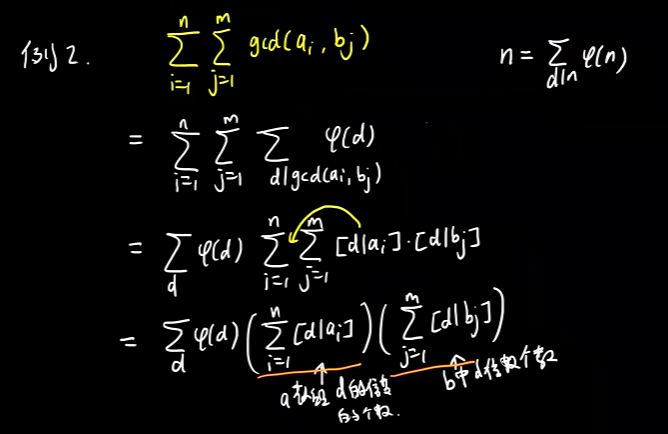 例2. \sum_{i=1}^{n} \sum_{j=1}^{m} gcd(a_i, b_j) n = \sum_{d|n} φ(n)
= \sum_{i=1}^{n} \sum_{j=1}^{m} \sum_{d|gcd(a_i, b_j)} φ(d)
= \sum_{d} φ(d) \sum_{i=1}^{n} \sum_{j=1}^{m} [d|a_i]·[d|b_j]
= \sum_{d} φ(d) (\sum_{i=1}^{n} [d|a_i]) (\sum_{j=1}^{m} [d|b_j])
a数组 d的倍数 b中d倍数个数
的个数.